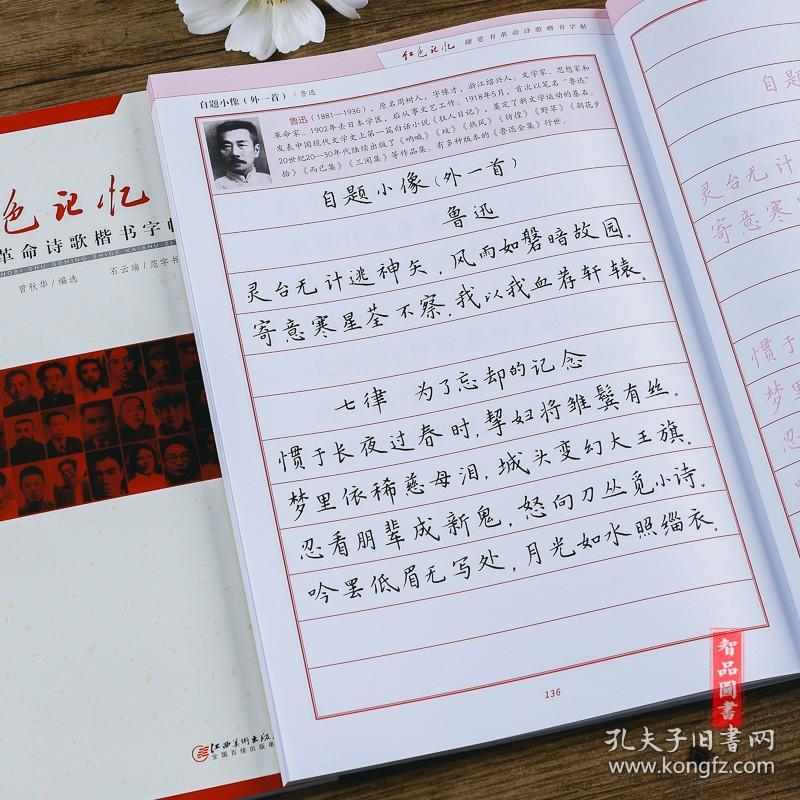 红色记忆 硬笔书革命诗歌楷书字帖
自题小像(外一首)/鲁迅
鲁迅(1881—1936),原名周树人,字豫才,浙江绍兴人。文学家、思想家和
革命家。1902年去日本学医,后从事文艺工作。1918年5月,首次以笔名“鲁迅”
发表中国现代文学史上第一篇白话小说《狂人日记》,奠定了新文学运动的基石。
20世纪20—30年代陆续出版了《呐喊》《坟》《热风》《彷徨》《野草》《朝花夕
拾》《而已集》《三闲集》等作品集。有多种版本的《鲁迅全集》行世。
自题小像(外一首)
鲁迅
灵台无计逃神矢,风雨如磐暗故园。
寄意寒星荃不察,我以我血荐轩辕。
七律 为了忘却的记念
惯于长夜过春时,挈妇将雏鬓有丝。
梦里依稀慈母泪,城头变幻大王旗。
忍看朋辈成新鬼,怒向刀丛觅小诗。
吟罢低眉无写处,月光如水照缁衣。
136
自题
灵台无计
寄意寒
惯于
梦
忍
色记忆
革命诗歌楷书字帖
曾秋华/编选 石云端/范字书
江西美术出版
全国百佳出版单
智品圖書
孔夫子旧书网
www.kongfz.com